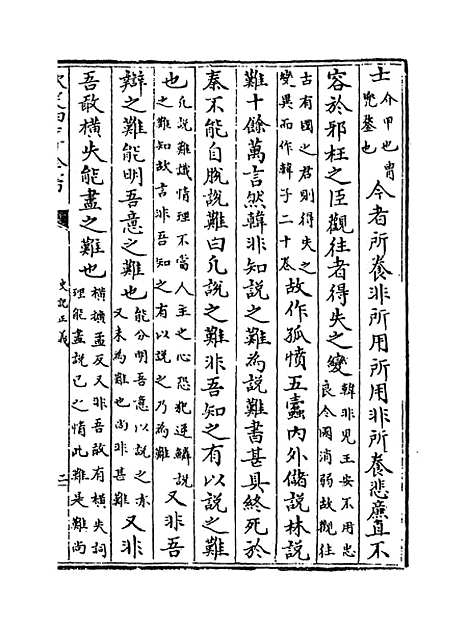 士介甲也冑兜鍪也今者所養非所用所用非所養悲廉直不
容於邪枉之臣觀往者得失之變韓非見王安不用忠良令國消弱故觀往
古有國之君則得失之變異而作韓子二十卷故作孤憤五蠹內外儲說林說
難十餘萬言然韓非知說之難為說難書甚具終死於
秦不能自脫說難曰凡說之難非吾知之有以說之難
也凡說難識情理不當人主之心恐犯逆鱗說之難知故言非吾知之有以說之乃為難又非吾
辯之難能明吾意之難也能分明吾意以說之亦又未為難也尚非甚難又非
吾敢橫失能盡之難也橫擴孟反又非吾敢有橫失詞理能盡說已之情此雖是難尚
史記正義
二